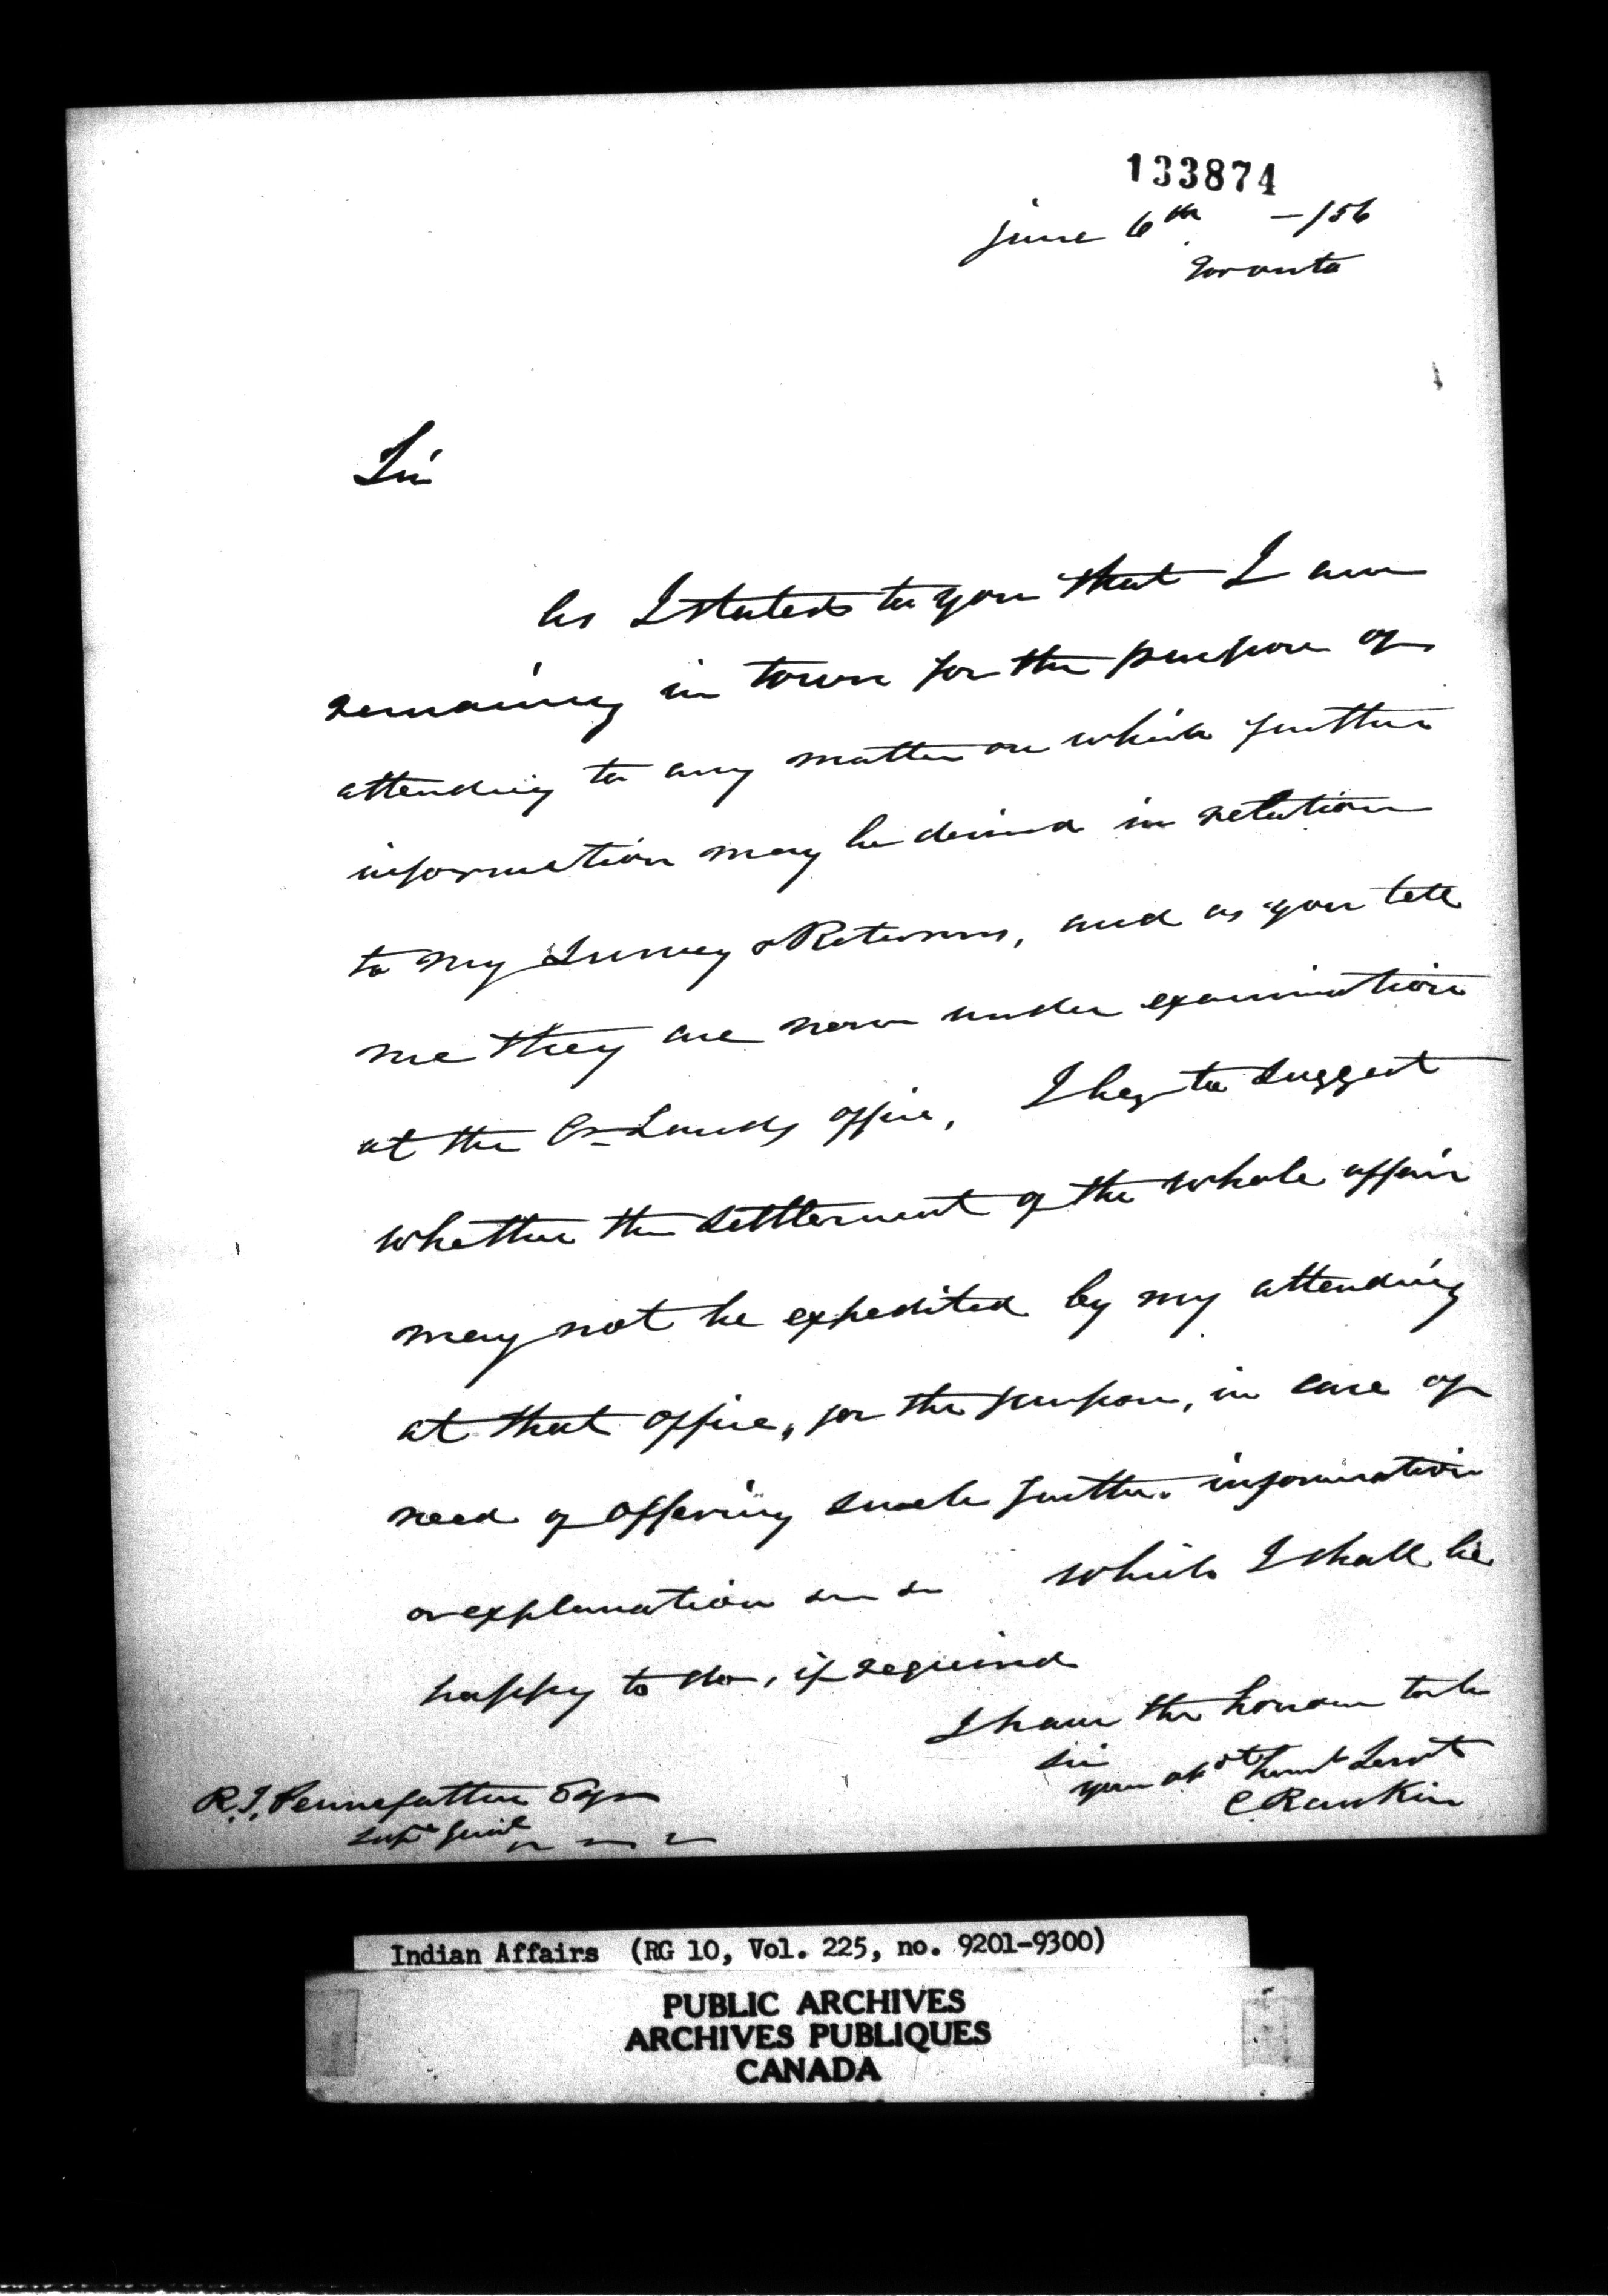 133874
June 6th —/56
Toronto
Sir
As I stated to you that I am
remaining in town for the purpose of
attending to any matter on which further
information may be desired in relation
to my Survey & Returns, and as you tell
me they are now under examination
at the Cn Lands office, I beg to suggest
whether the settlement of the whole affair
may not be expedited by my attending
at that office, for the purpose, in case of
need of offering such further information
or explanation which I shall be
happy to do, if required
I have the honour to be
Sir
your obdt humb Servt
C Rankin
R.T. Pennefather Esqr
Supt Genl
Indian Affairs (RG 10, Vol. 225, no. 9201-9300)
PUBLIC ARCHIVES
ARCHIVES PUBLIQUES
CANADA